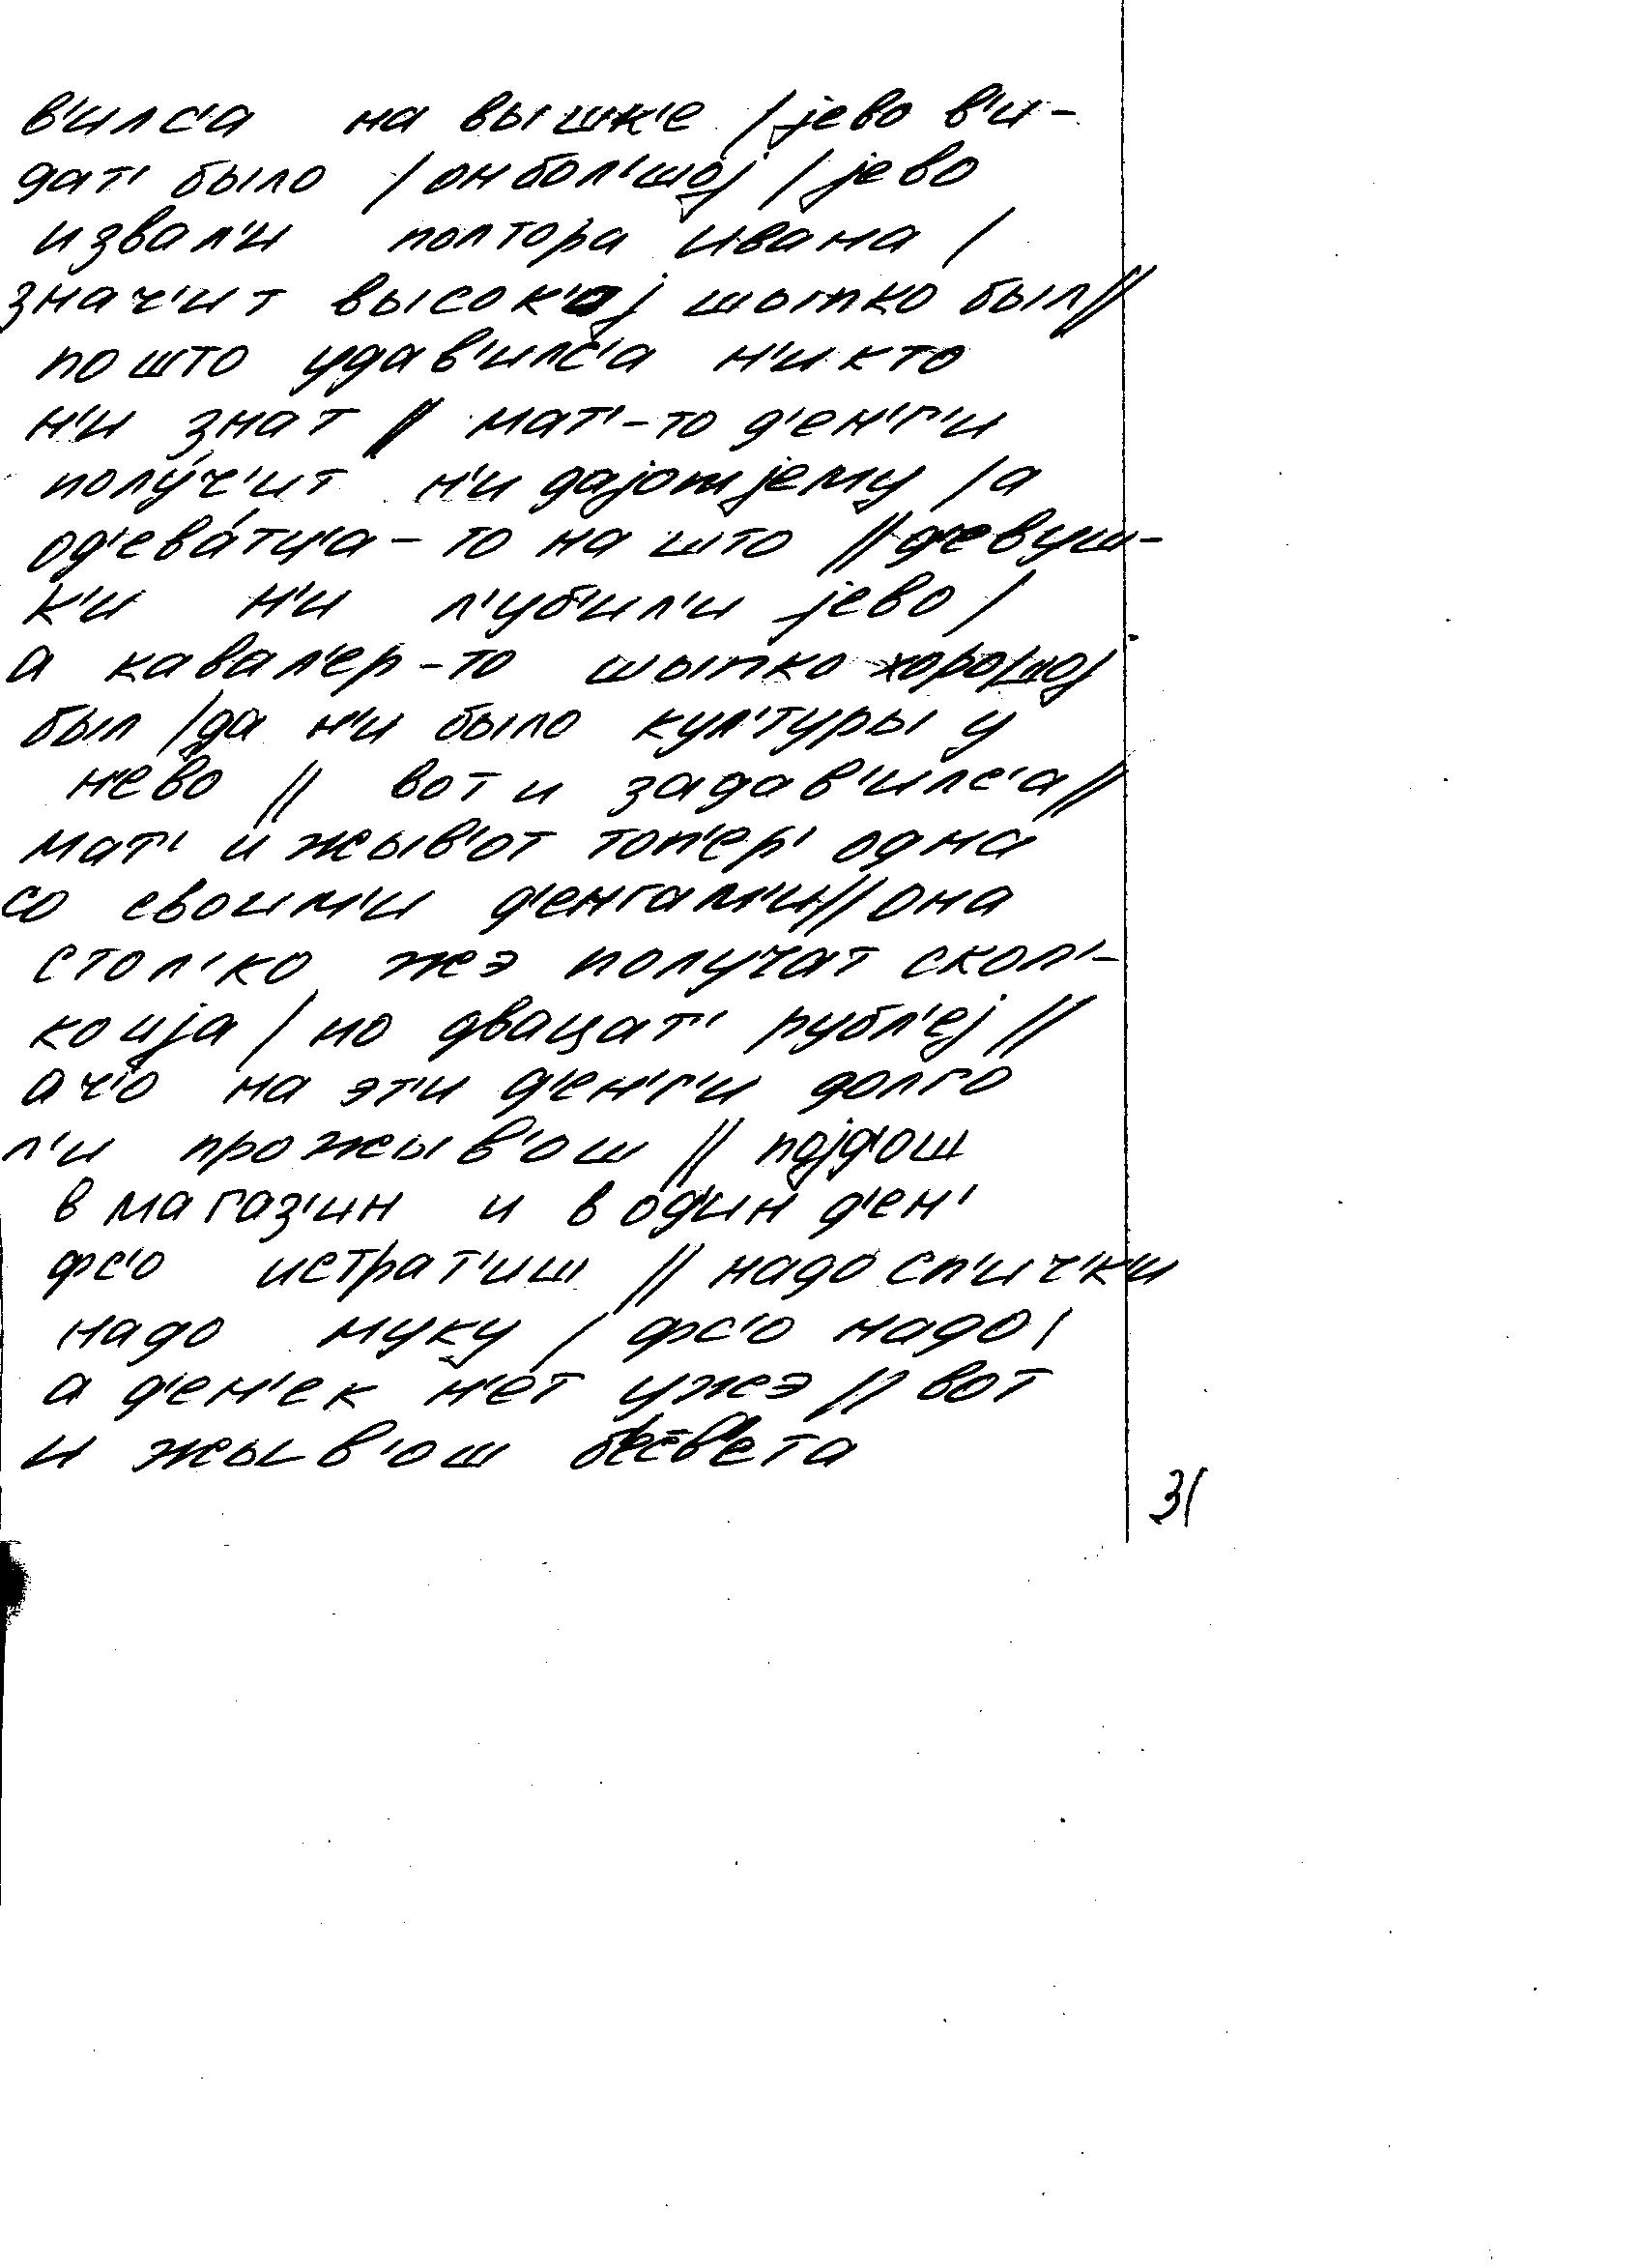 в'илс'а на вышк'е / јево в'и-
дат' было / он бол'шој / јево
извал'и полтора ивана /
знач'ит высок'ој шыпко был //
пошто удав'илс'а н'икто
н'и знат // мат'-то д'ен'г'и
полу́ч'ит н'и дајот јему / а
од'ева́тц'а-то на што // д'евуш-
к'и н'и л'уб'ил'и јево /
а кавал'ер-то шыпко хорошој
был / да н'и было кул'туры у
н'ево // вот и задав'илс'а //
мат' и жыв'от топ'ер' одна
со своим'и д'енгам'и // она
стол'ко жэ получат скол'-
ко ија / но двацат' рубл'еј //
а ч'о на эт'и д'ен'г'и долго
л'и прожыв'ош // појд'ош
в магаз'ин и в од'ин д'ен'
фс'о истрат'иш // надо сп'ич'к'и
надо муку / фс'о надо /
а д'ен'ек н'ет ужэ // вот
и жыв'ош б'есв'ета
31